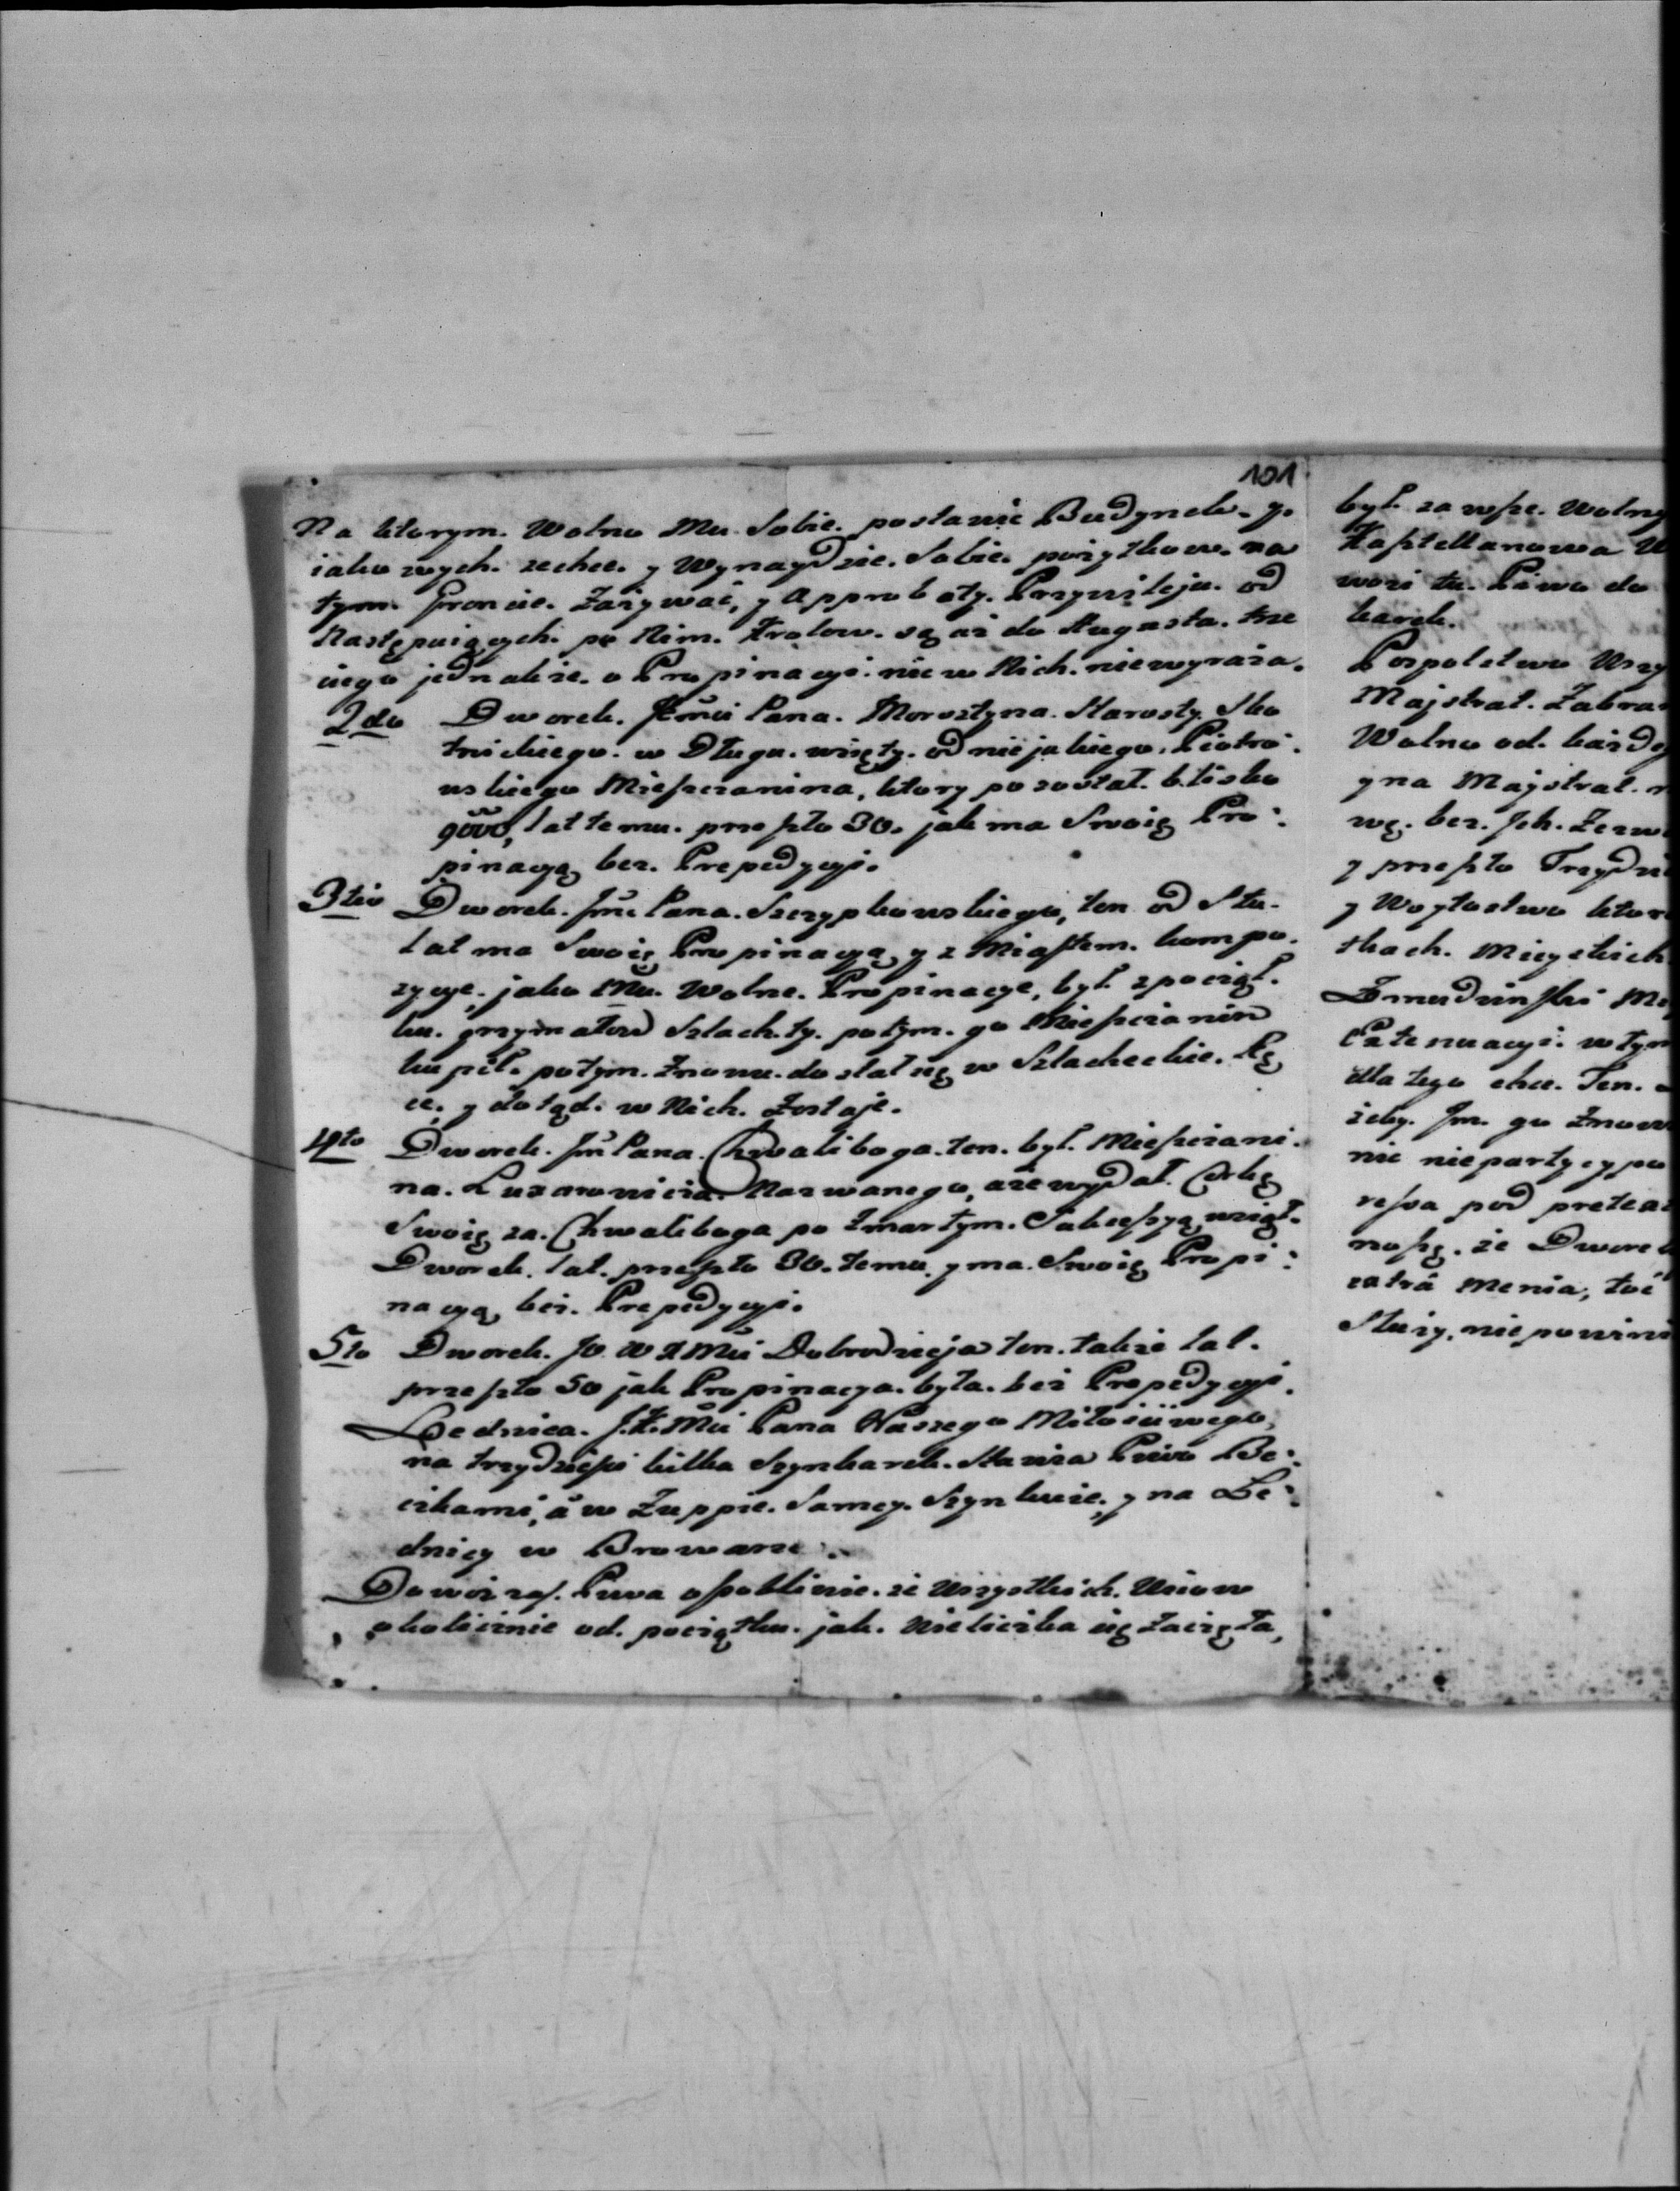 101
Na ktorym. Wolno Mu Sobie. postawic Budynek. y.
iakowych. zechce. y Wynaydzie. Sobie. pożytkow. na
tym. Groncie. Zażywać, y Approbaty. Przywileju. od
Następuiących. po Nim. Krolow. są aż do Augusta. trze
ciego jednakże. o Propinacyi. nic w Nich. niewyraża.
2do Dworek. Jēmci Pana. Morsztyna. Starosty. Sko
tnickiego. w Długu. wzięty. od niejakiego. Piotro:
wskiego Miesczanina, ktory pozostał. blisko
lat temu. przeszło 30. jak ma Swoię Pro:
pinacyą bez. Prepedycyi.
3tio Dworek. Jmci Pana. Szczypkowskiego, ten od Stu.
lat ma Swoię Propinacyą, y z Miastem. kompo.
zycye. jako Mu. Wolne. Propinacye, był z począt.
ku. Szlachty. potym. go Miesczanin
kupił. potym. Znowu. dostał się w Szlacheckie. Rę
ce, y dotąd. w Nich. Zostaje.
4to Dworek. Jm Pana. Chwaliboga. ten. był. Miesczani.
na. Nazwanego, aże wydał. Corkę
Swoię za. Chwaliboga po Zmarłym. Sukcessyą wziął.
Dworek. lat. przeszło 30. temu. y ma. Swoię Propi:
nacyą, bez. Prepedycyi.
5to Dworek. Jo W X Mci Dobrodzieja ten. także lat.
przeszło 50 jak Propinacya. była. bez Prepedycyi.
Lednica. J. K. Mci Pana Naszego Miłościwego
na trzydzieści kilka Szynkarek. Stawia Piwo Be:
czkami, á w Zuppie. Samey. Szynkuie, y na Le:
dnicy w Browarze.
Dowoz zaś. Piwa opoblicznie. ze Wszystkich. Wsiow
okolicznie od. początku. jak. Wieliczka się Zaczęła,
był. zawsze. Wolny
Kasztellanowa W
wozi tu. Piwo do
karek.
Pospolstwo Wszy
Majstrat. Zabra
Wolno od. każdeg
y na Majstrat.
wę. bez. Ich. Zezw
y przeszło Trzydzi
y Woytostwo ktor
tkach. Mieyskich
Zmudzinski
w tym
dla tego chce. Ten.
żeby. Jm. go Znow
nic niepartycypo
ressa pod pretex
noszę. że Dwore
menia, toć
Służy, nie powini